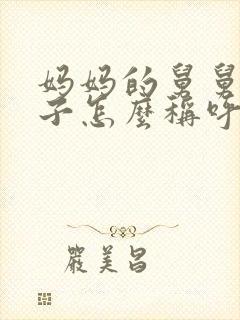 妈妈的舅舅
子怎麼稱呼
嚴美昌